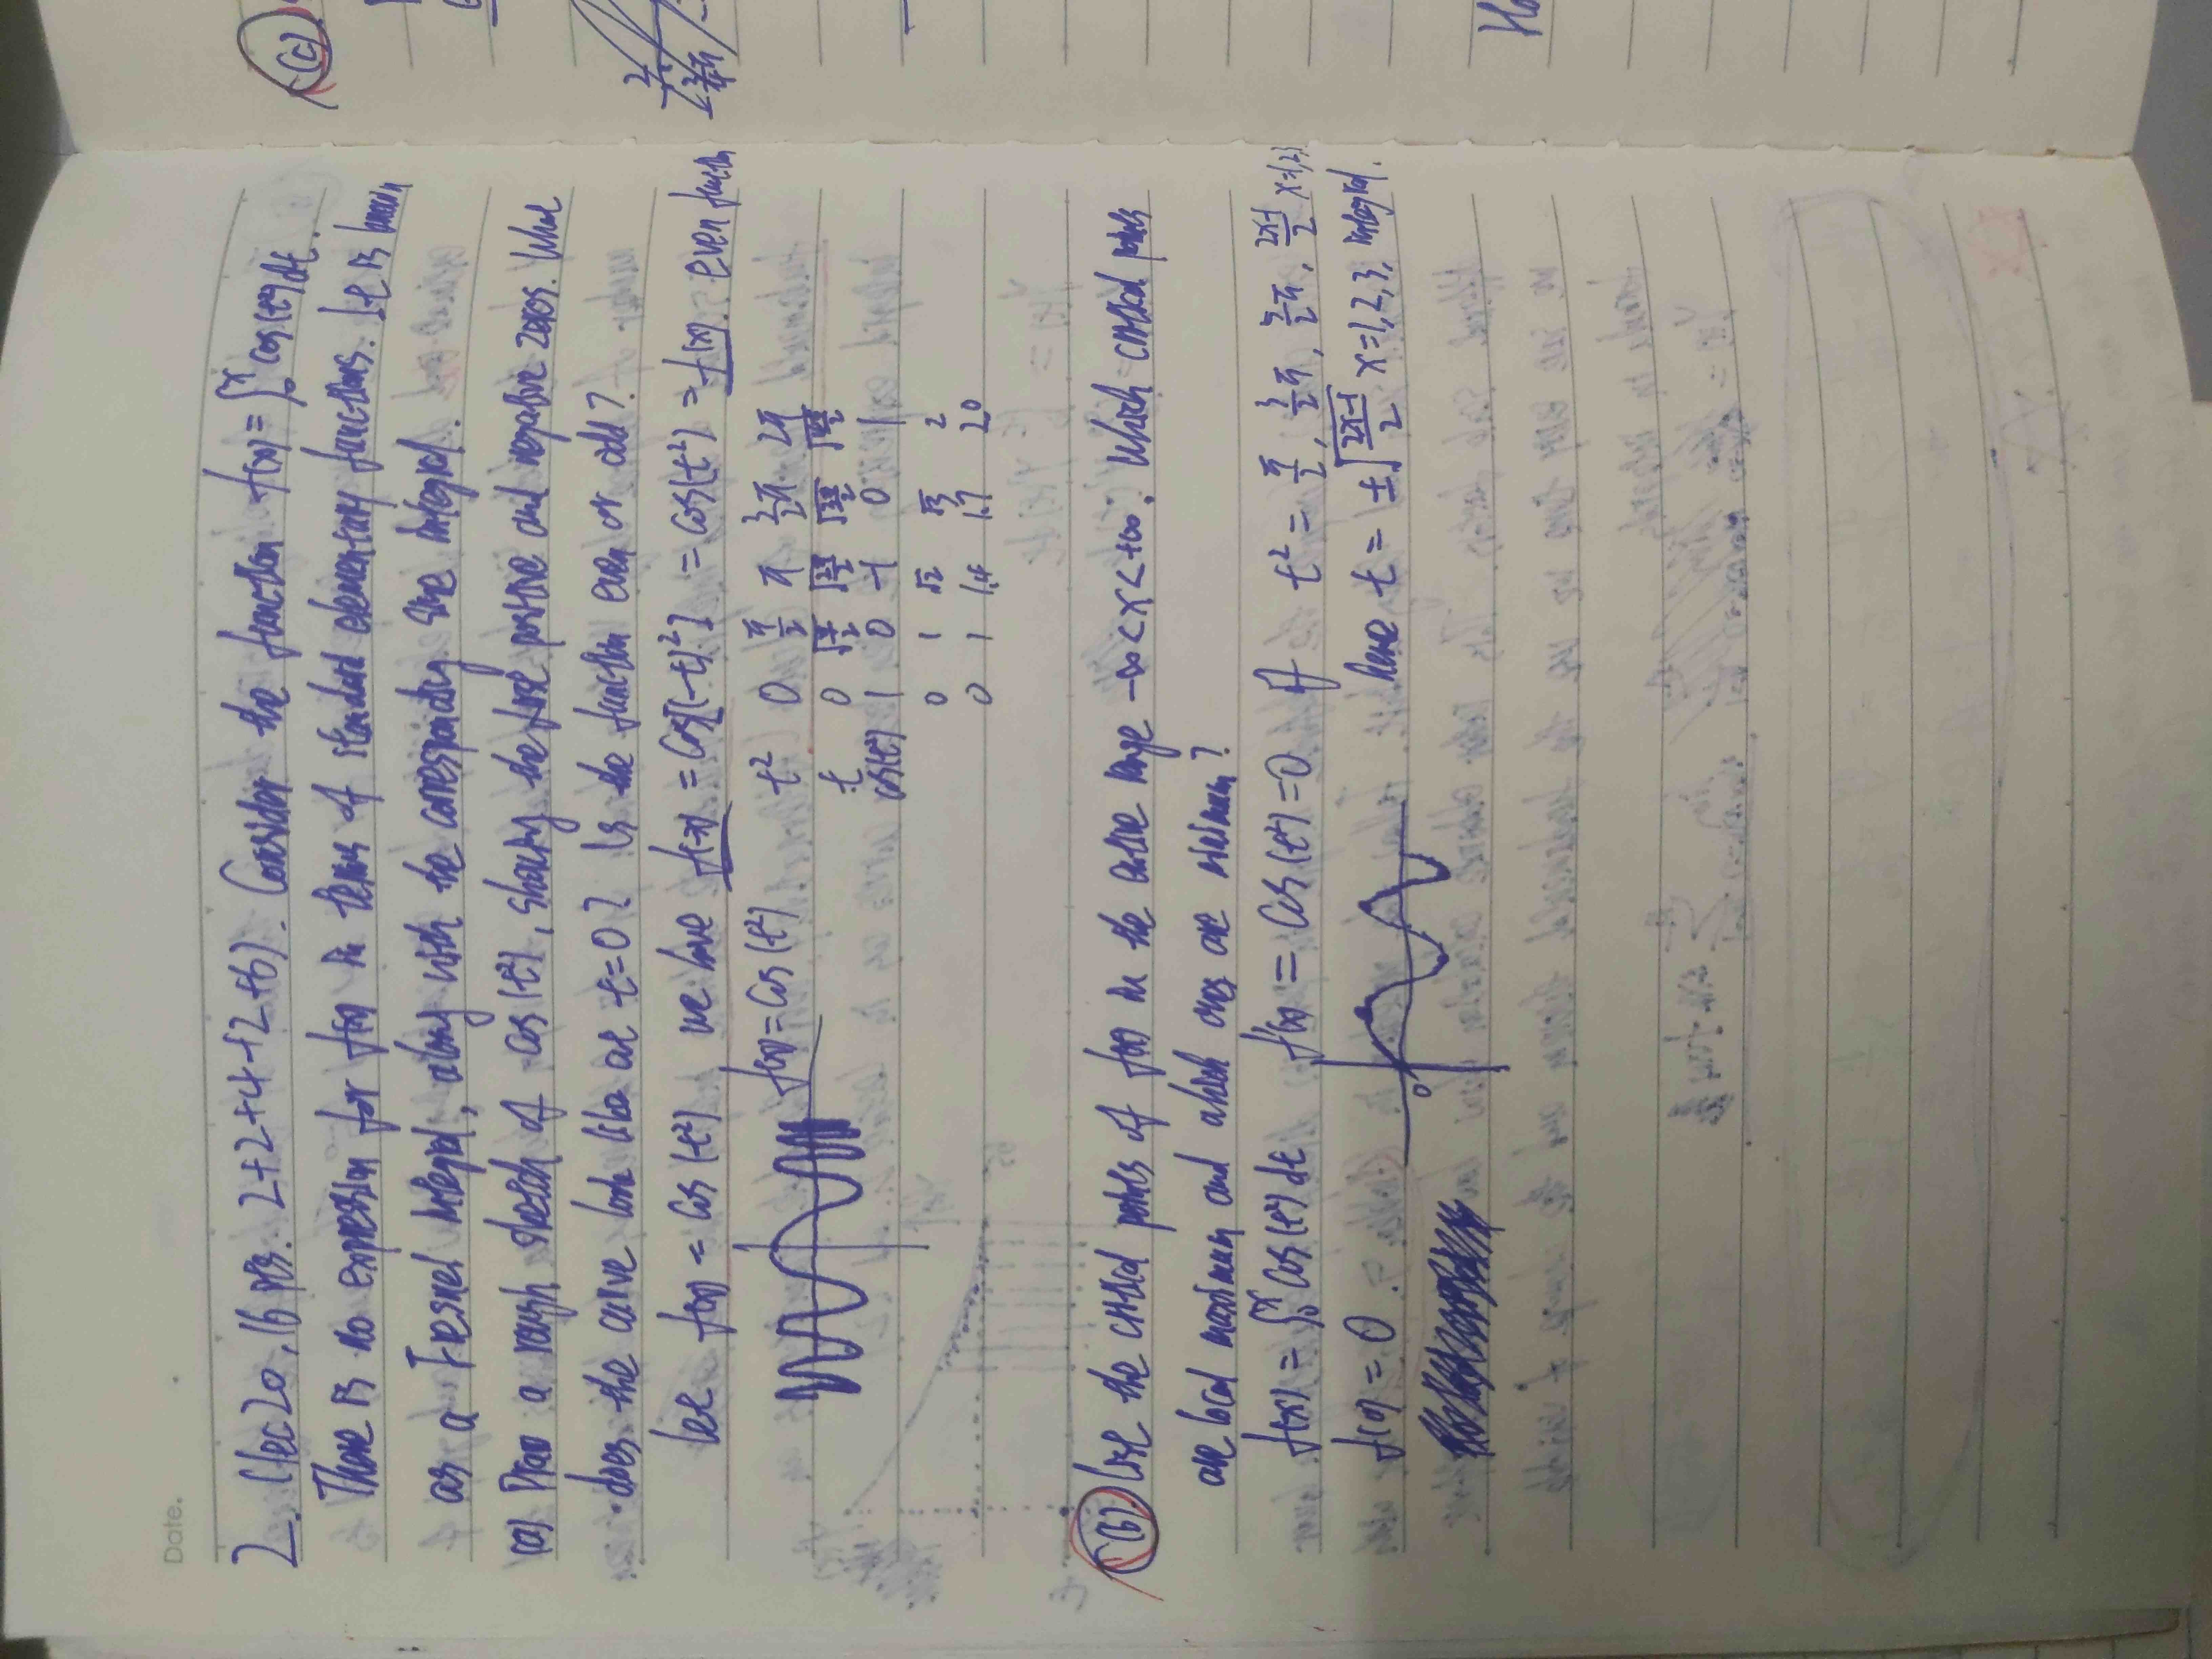 Date.
2. (Lec20, 16 pts. 2+2+4+2+6). Consider the function f(x) = ∫₀ˣ cos(t²)dt.
There is no expression for f(x) in terms of standard elementary functions. It is known
as a Fresnel integral, along with the corresponding sine integral.
(a) Draw a rough sketch of cos(t²), showing the first positive and negative zeros. What
does the curve look like at t=0? Is the function even or odd?
let f(x) = cos(t²) we have f(-x) = cos[(-t)²] = cos(t²) = f(x). even
f(x)=cos(t²)
t² 0 π/2 π 3/2π 2π
t 0 √(π/2) √(2π/2) √(3π/2) √(4π/2)
cos(t²) 1 0 -1 0 1
0 1 √2 √3 2
0 1 1.4 1.7 2.0
(b) List the critical points of f(x) in the entire range -∞<x<+∞. Which critical points
are local maximum and which ones are minimum?
f(x) = ∫₀ˣ cos(t²)dt f'(x) = cos(t²)=0 if t² = π/2, 3/2π, 5/2π,
f(0) = 0 0 here t = ± x=1,2,3, integral.
(c)